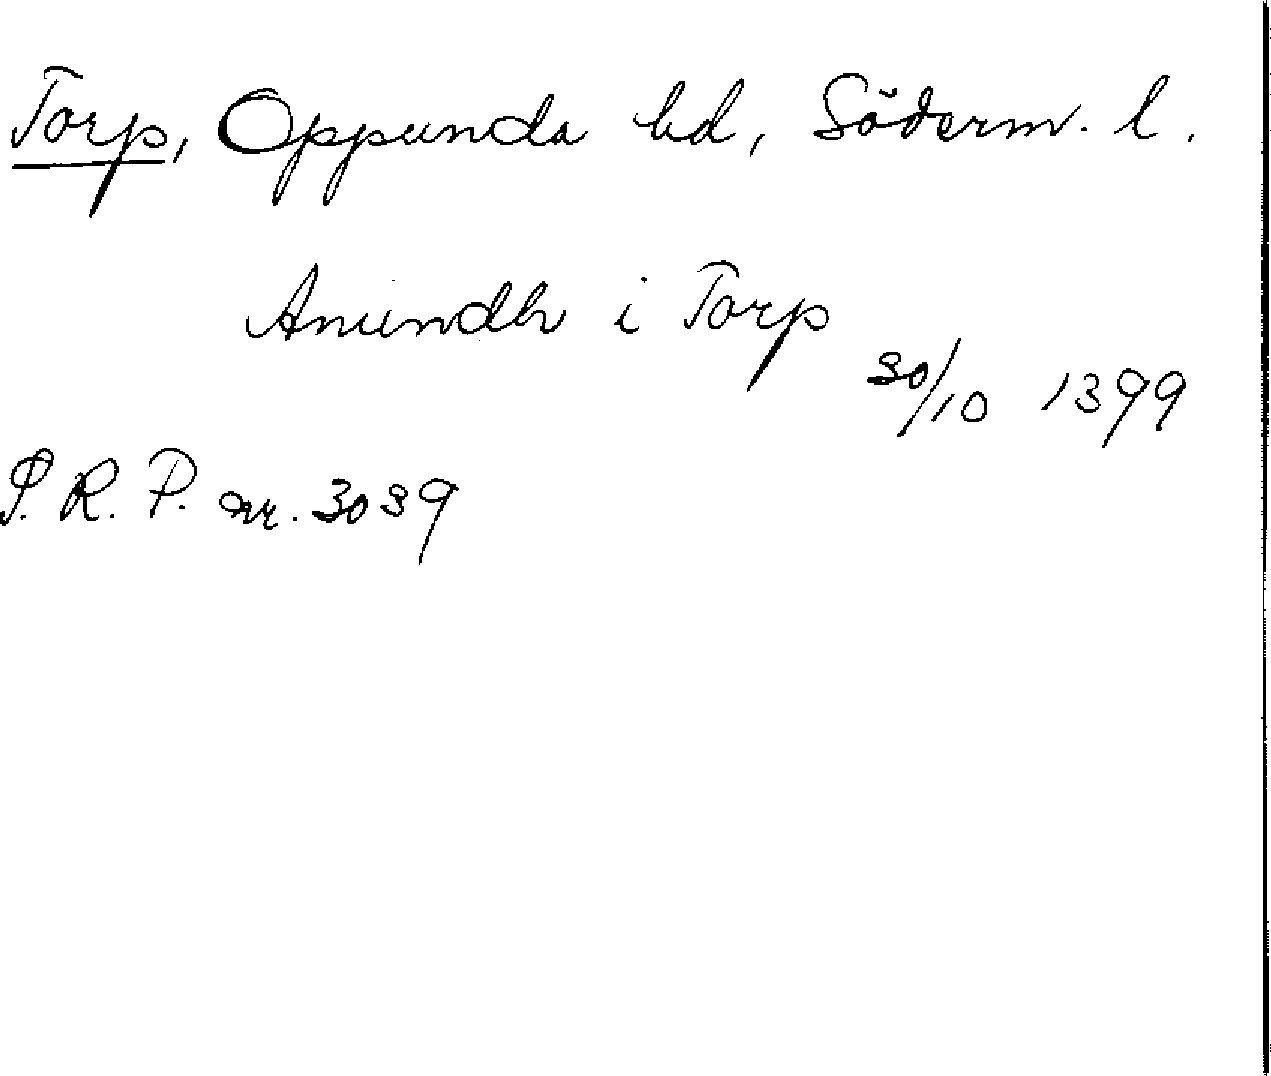 Torp, Oppunda hd, Söderm. l.
Anundh i Torp
30/10 1399
S.R.P. nr. 3039